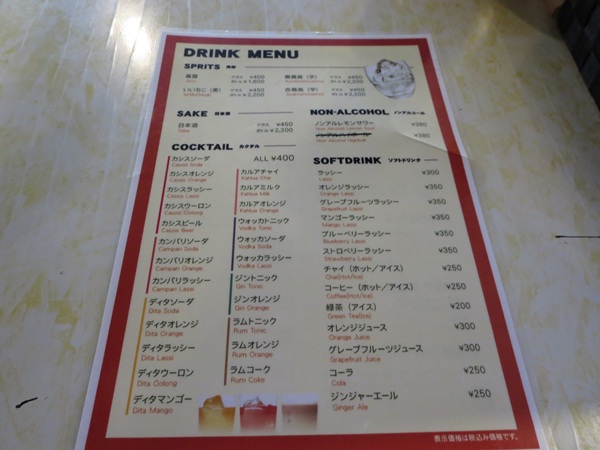 DRINK MENU
SPRITS
グラス ¥400
ボトル ¥1,800
いいちこ(麦) グラス ¥450
ボトル ¥2,200
黒霧島(芋) グラス ¥450
ボトル ¥2,200
赤霧島(芋)
ボトル ¥2,200
SAKE 日本酒
日本酒 グラス ¥450
Sake ボトル ¥2,200
NON-ALCOHOL ノンアルコール
ノンアルレモンサワー ¥380
Non Alcohol Lemon Sour
ノンアルハイボール ¥380
Non Alcohol Highball
COCKTAIL カクテル ALL ¥400
カシスソーダ
Cassis Soda
カシスオレンジ
Cassis Orange
カシスラッシー
Cassis Lassi
カシスウーロン
Cassis Oolong
カシスビール
Cassis Beer
カンパリソーダ
Campari Soda
カンパリオレンジ
Campari Orange
カンパリラッシー
Campari Lassi
ディタソーダ
Dita Soda
ディタオレンジ
Dita Orange
ディタラッシー
Dita Lassi
ディタウーロン
Dita Oolong
ディタマンゴー
Dita Mango
カルアチャイ
Kahlua Chai
カルアミルク
Kahlua Milk
カルアオレンジ
Kahlua Orange
ウォッカトニック
Vodka Tonic
ウォッカソーダ
Vodka Soda
ウォッカラッシー
Vodka Lassi
ジントニック
Gin Tonic
ジンオレンジ
Gin Orange
ラムトニック
Rum Tonic
ラムオレンジ
Rum Orange
ラムコーク
Rum Coke
SOFTDRINK ソフトドリンク
ラッシー ¥300
Lassi
オレンジラッシー ¥350
Orange Lassi
グレープフルーツラッシー ¥350
Grapefruit Lassi
マンゴーラッシー ¥350
Mango Lassi
ブルーベリーラッシー ¥350
Blueberry Lassi
ストロベリーラッシー ¥350
Strawberry Lassi
チャイ(ホット/アイス) ¥250
Chai(Hot/Ice)
コーヒー(ホット/アイス) ¥250
Coffee(Hot/Ice)
緑茶(アイス) ¥200
Green Tea(Ice)
オレンジジュース ¥300
Orange Juice
グレープフルーツジュース ¥300
Grapefruit Juice
コーラ ¥250
Cola
ジンジャーエール ¥250
Ginger Ale
表示価格は税込み価格です。